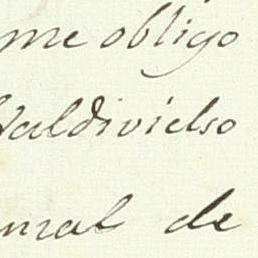 me obligo
Valdivielso
mal de